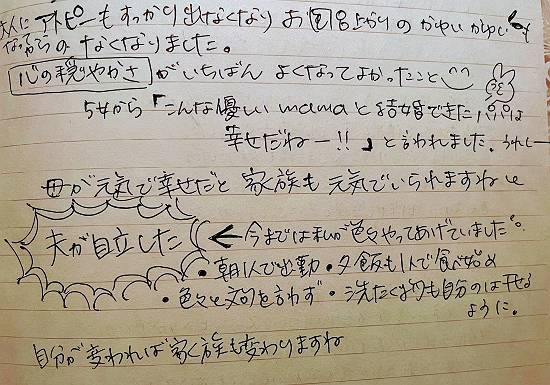 大人に アトピーもすっかり出なくなり お風呂上がりのかゆいかゆいも
なってからの なくなりました。
心の穏やかさ がいちばん よくなってよかったこと
5才から「こんな優しい mamaと結婚できたパパは
幸せだねー!!」と言われました。うれしー
母が元気で幸せだと 家族も元気でいられますね
夫が自立した ← 今までは私が色々やってあげていました。
・朝1人で出勤 ・夕飯も1人で食べ始め
・色々と文句を言わず ・洗たく物も自分のは干せる
ように。
自分が変われば家く族も変わりますね